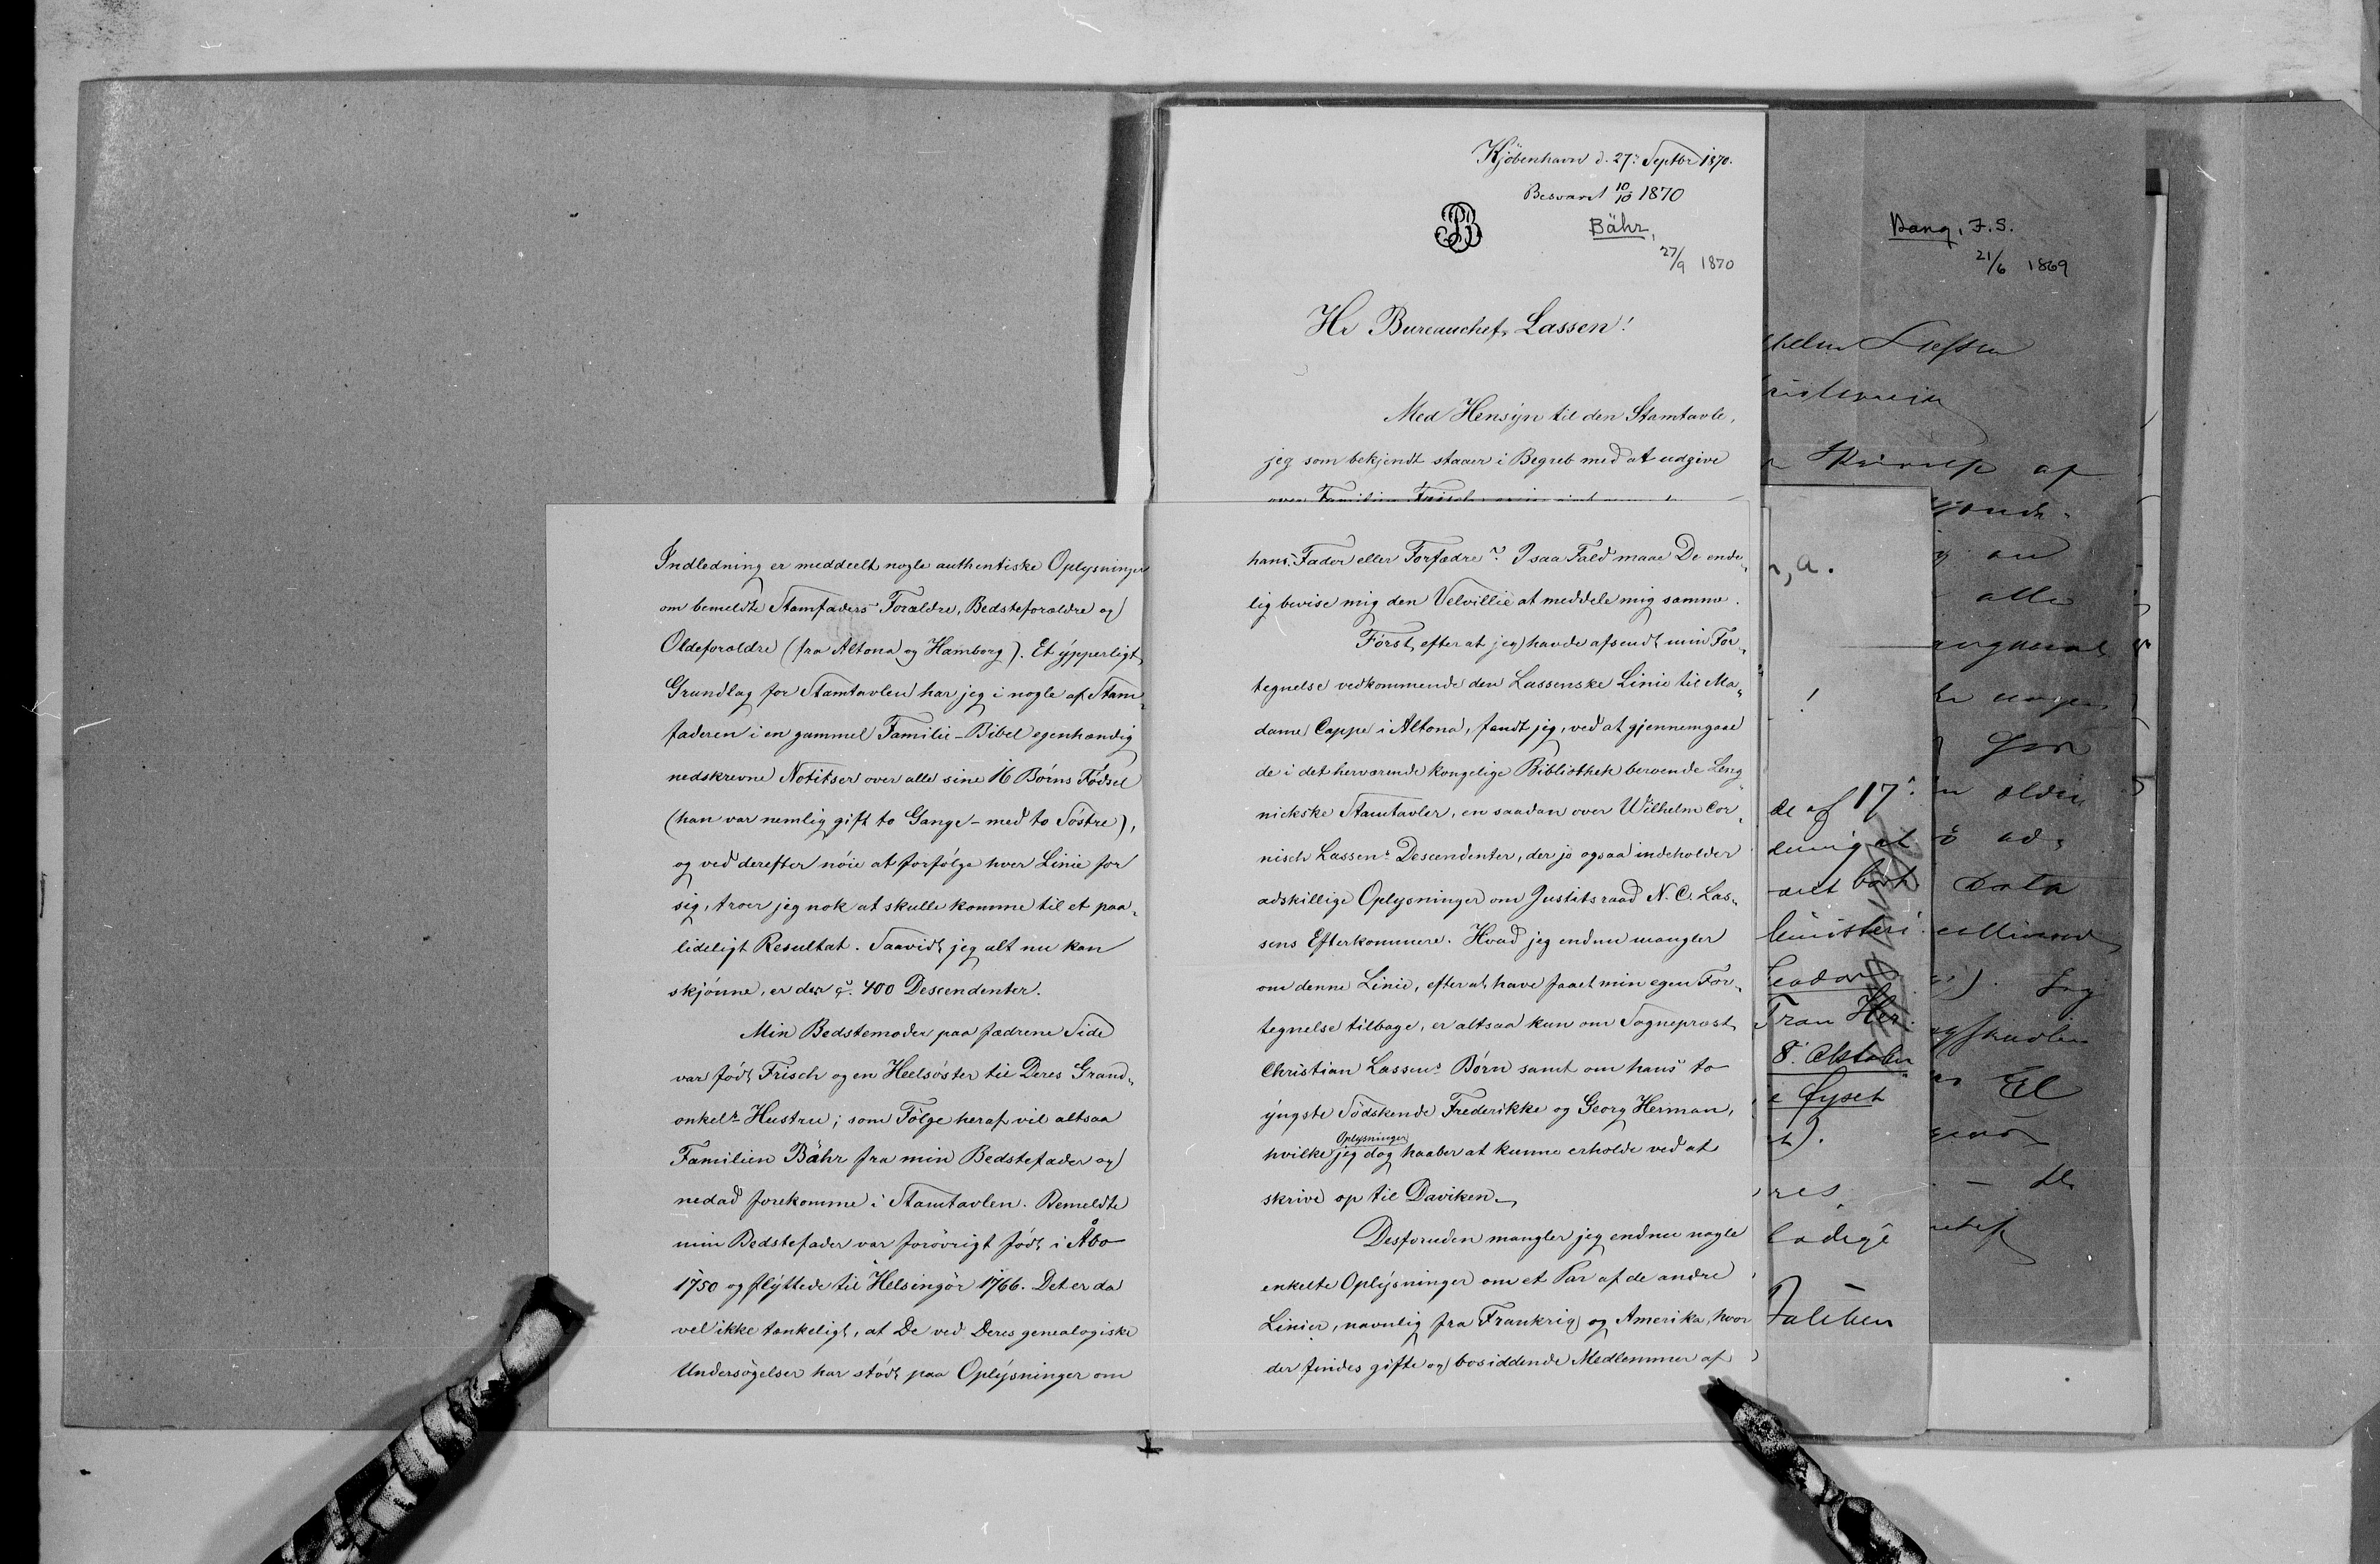 Kjöbenhavn d. 27. Septbr 1870.
Besvaret 10/10 1870
Bähr,
27/9 1870
Hr Bureauchef Lassen!
Med Hensyn til den Stamtavle,
jeg som bekjendt staaer i Begreb med at udgive
over Familien Frisch
Indledning er meddeelt nogle authentiske Oplysninger
om bemeldte Stamfaders Forældre, Bedsteforældre og
Oldeforældre (fra Altona og Hamborg). Et ypperligt
Grundlag for Stamtavlen har jeg i nogle af Stam-
faderen i en gammel Familie-Bibel egenhændig
nedskrevne Notitser over alle sine 16 Börns Födsel
(han var nemlig gift to Gange - med to Söstre),
og ved derefter nöie at forfölge hver Linie for
sig, troer jeg nok at skulle komme til et paa-
lideligt Resultat. Saavidt jeg alt nu kan
skjönne, er der c. 400 Descendenter.
Min Bedstemoder paa fædrene Side
var födt Frisch og en Heelsöster til Deres Grand-
onkels Hustru; som Fölge heraf vil altsaa
Familien Bähr fra min Bedstefader og
nedad forekomme i Stamtavlen. Bemeldte
min Bedstefader var forövrigt födt i Åbo
1750 og flyttede til Helsingör 1766. Det er da
vel ikke tænkeligt, at De ved Deres genealogiske
Undersögelser har stödt paa Oplysninger om
hans Fader eller Forfædre? I saa Fald maae De ende-
lig bevise mig den Velvillie at meddele mig samme.
Först efter at jeg havde afsendt min For-
tegnelse vedkommende den Lassenske Linie til Ma-
dame Cappe i Altona, fandt jeg, ved at gjennemgaae
de i det herværende kongelige Bibliothek beroende Leng-
nickske Stamtavler, en saadan over Wilhelm Cor-
nisch Lassens Descendenter, der jo ogsaa indeholder
adskillige Oplysninger om Justitsraad N. C. Las-
sens Efterkommere. Hvad jeg endnu mangler
om denne Linie, efter at have faaet min egen For-
tegnelse tilbage, er altsaa kun om Sogneprest
Christian Lassens Börn samt om hans to
yngste Södskende Frederikke og Georg Herman,
hvilke Oplysninger jeg dog haaber at kunne erholde ved at
skrive op til Daviken.
Desforuden mangler jeg endnu nogle
enkelte Oplysninger om et Par af de andre
Linier, navnlig fra Frankrig og Amerika, hvor
der findes gifte og bosiddende Medlemmer af
n, a.
!
de af 17.
8. Oktober
res
Bang, F.S.
21/6 1869
af
alle
El